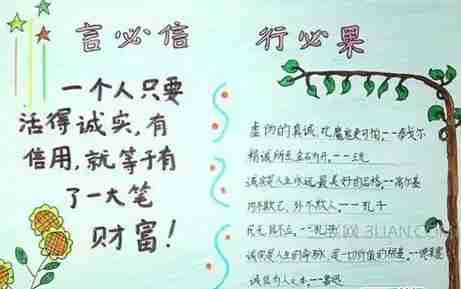 言必信
行必果
一个人只要
活得诚实,有
信用,就等于有
了一大笔
财富!
虚伪的真诚,比魔鬼更可怕,--泰戈尔
精诚所至金石为开,--王充
诚实是人生永远最美好的品格,--高尔基
内不欺己,外不欺人,--孔子
民无信不立,--孔子
诚实是人生的命脉,是一切价值的根基,--德莱塞
诚信为人之本,--鲁迅
3LIAN.COM